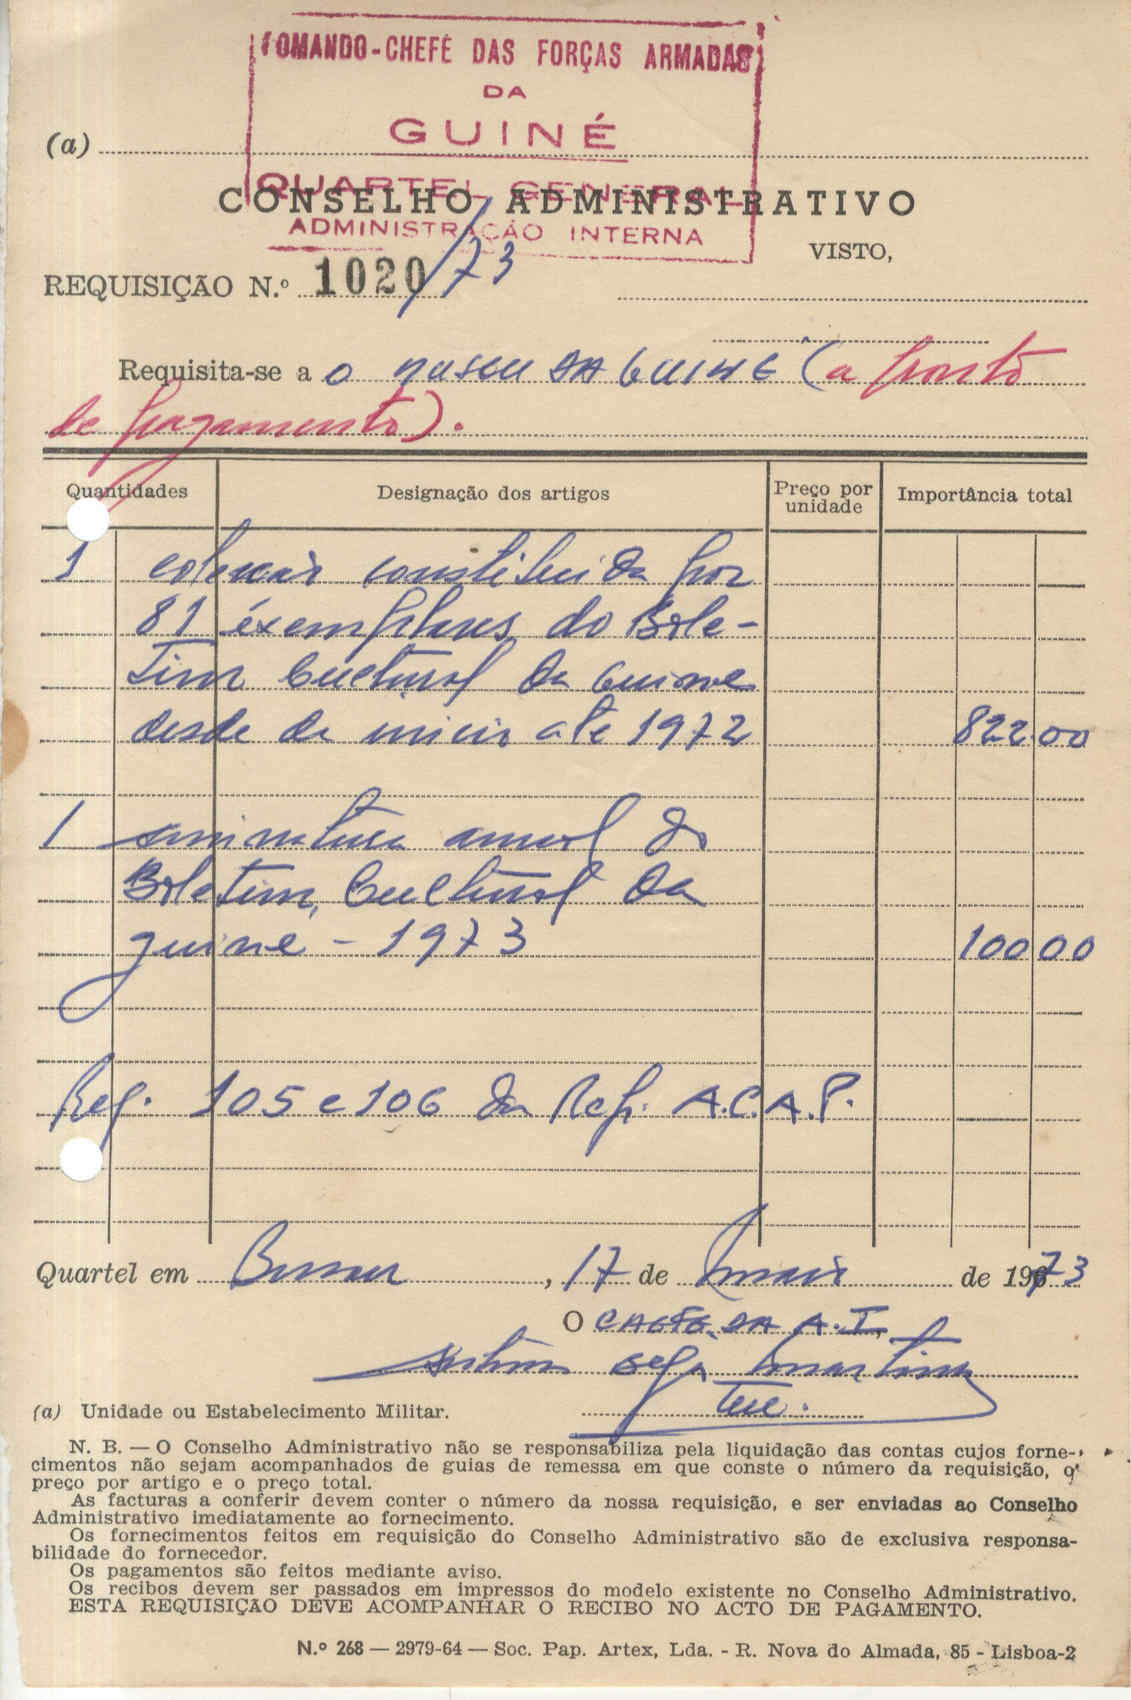 COMANDO-CHEFE DAS FORÇAS ARMADAS
DA
GUINÉ
(a)
QUARTEL GENERAL
CONSELHO ADMINISTRATIVO
ADMINISTRAÇÃO INTERNA
VISTO,
REQUISIÇÃO N.º 1020/73
Requisita-se a o museu DA GUINE (a pronto
de pagamento).
Quantidades Designação dos artigos Preço por unidade Importância total
1 colecção constituida por
81 exemplares do Bole-
tim Cultural da Guine
desde de inicio até 1972 822 00
1 assinatura anual do
Boletim Cultural da
guine - 1973 100 00
Req. 105 e 106 da Rep. A.C.A.P.
Quartel em Bissau, 17 de maio de 1973
O CHEFE DA A.I.
Martins
(a) Unidade ou Estabelecimento Militar.
N. B. — O Conselho Administrativo não se responsabiliza pela liquidação das contas cujos forne-
cimentos não sejam acompanhados de guias de remessa em que conste o número da requisição, o
preço por artigo e o preço total.
As facturas a conferir devem conter o número da nossa requisição, e ser enviadas ao Conselho
Administrativo imediatamente ao fornecimento.
Os fornecimentos feitos em requisição do Conselho Administrativo são de exclusiva responsa-
bilidade do fornecedor.
Os pagamentos são feitos mediante aviso.
Os recibos devem ser passados em impressos do modelo existente no Conselho Administrativo.
ESTA REQUISIÇÃO DEVE ACOMPANHAR O RECIBO NO ACTO DE PAGAMENTO.
N.º 268 — 2979-64 — Soc. Pap. Artex, Lda. - R. Nova do Almada, 85 - Lisboa-2